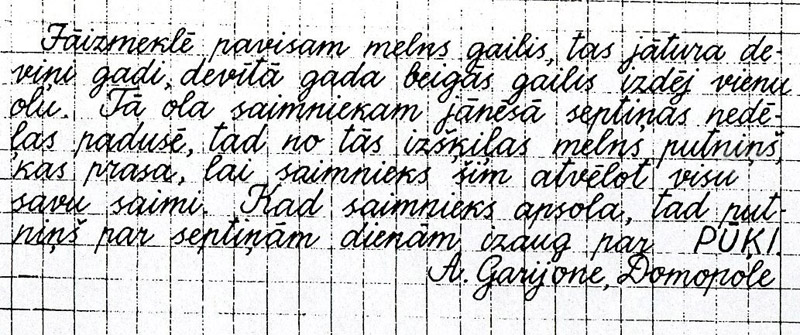 Jāizmeklē pavisam melns gailis, tas jātura de-
viņi gadi, devītā gada beigās gailis izdēj vienu
olu. Tā ola saimniekam jānēsā septiņas nedē-
ļas padusē, tad no tās izšķiļas melns putniņš,
kas prasa, lai saimnieks šim atvēlot visu
savu saimi. Kad saimnieks apsola, tad put-
niņš par septiņām dienām izaug par PŪĶI.
A. Garijone, Domopole